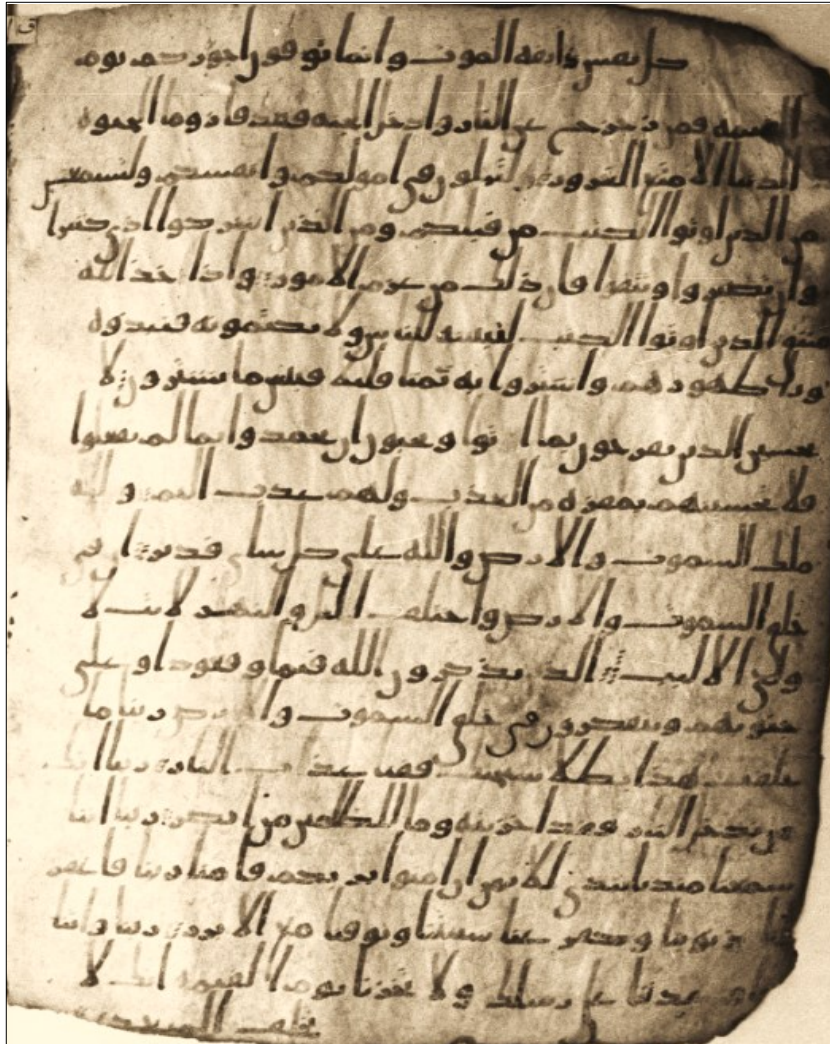 كل نفس ذايقه الموت وانما توفون اجوركم يوم
القيمه فمن زحزح عن النار وادخل الجنه فقد فاز وما الحيوه
الدنيا الا متع الغرور لتبلون في امولكم وانفسكم ولتسمعن
من الذين اوتوا الكتب من قبلكم ومن الذين اشركوا اذى كثيرا
وان تصبروا وتتقوا فان ذلك من عزم الامور واذ اخذ الله
ميثق الذين اوتوا الكتب لتبيننه للناس ولا تكتمونه فنبذوه
ورا ظهورهم واشتروا به ثمنا قليلا فبيس ما يشترون لا
تحسبن الذين يفرحون بما اتوا ويحبون ان يحمدوا بما لم يفعلوا
فلا تحسبنهم بمفزه من العذب ولهم عذب اليم ولله
ملك السموت والارض والله على كل شاى قدير ان في
خلق السموت والارض واختلف اليل والنهر لايت لا
ولى الالبب الذين يذكرون الله قيما وقعودا وعلى
جنوبهم ويتفكرون في خلق السموت والارض ربنا ما
خلقت هذا بطلا سبحنك فقنا عذاب النار ربنا انك
من تدخل النار فقد اخزيته وما للظلمين من انصر ربنا اننا
سمعنا منديا يندي للايمن ان امنوا بربكم فامنا ربنا فاغفر
لنا ذنوبنا وكفر عنا سيتنا وتوفنا مع الابرر ربنا واتنا
ما وعدتنا على رسلك ولا تخزنا يوم القيمه انك لا
تخلف الميعد